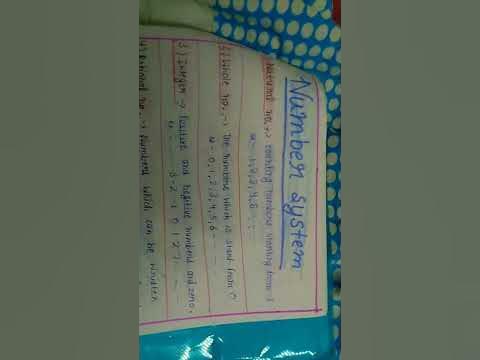 Number system
Natural no. → counting numbers starting from 1
2) Whole no. → The numbers which is start from 0
W - 0, 1, 2, 3, 4, 5, 6 - - -
3) Integers → Positive and negative numbers and zero.
- 3 - 2 - 1 0 1 2
Rational no. → Numbers which can be written